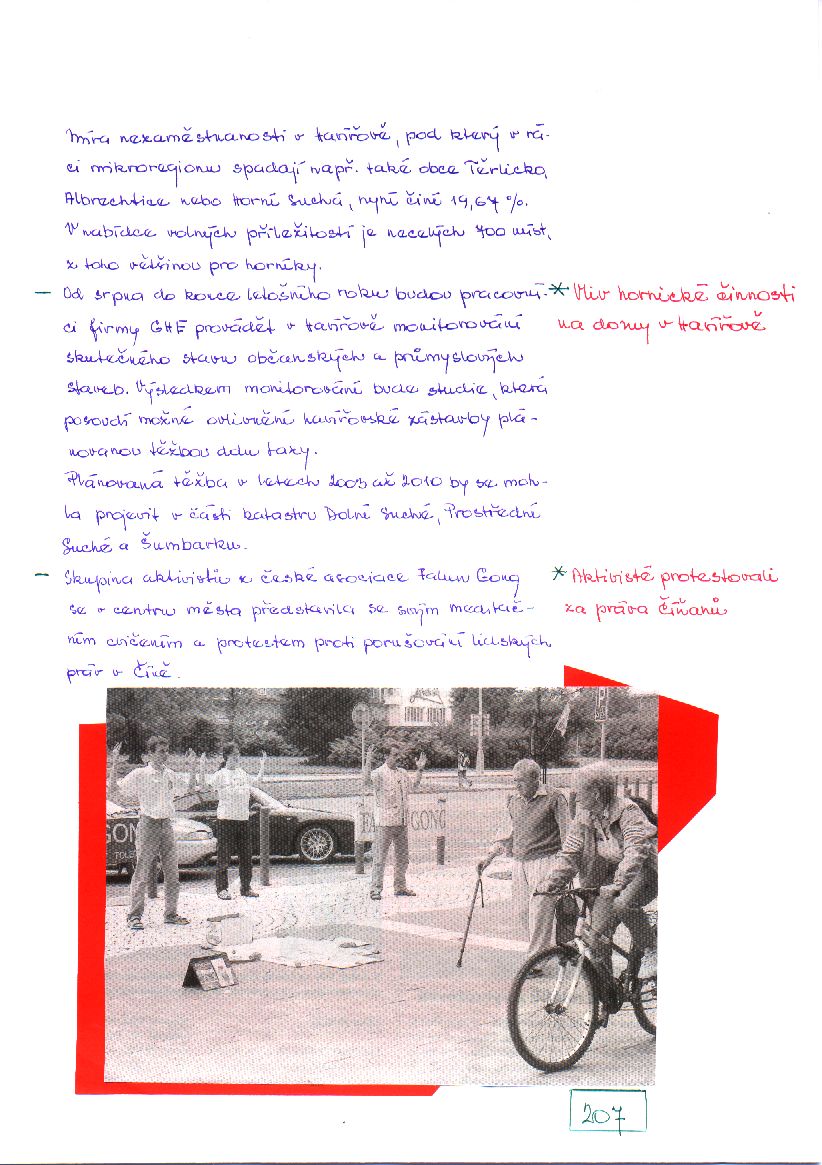 Míra nezaměstnanosti v Havířově, pod který v rá-
ci mikroregionu spadají např. také obce Těrlicko,
Albrechtice nebo Horní Suchá, nyní činí 19,67 %.
V nabídce volných příležitostí je necelých 700 míst,
z toho většinou pro horníky.
– Od srpna do konce letošního roku budou pracovní-
* Vliv hornické činnosti
ci firmy GHE provádět v Havířově monitorování
na domy v Havířově
skutečného stavu občanských a průmyslových
staveb. Výsledkem monitorování bude studie, která
posoudí možné ovlivnění havířovské zástavby plá-
novanou těžbou dolu Lazy.
Plánovaná těžba v letech 2003 až 2010 by se moh-
la projevit v části katastru Dolní Suché, Prostřední
Suché a Šumbarku.
– Skupina aktivistů z české asociace Falun Gong
* Aktivisté protestovali
se v centru města představila se svým meditač-
za práva Číňanů
ním cvičením a protestem proti porušování lidských
práv v Číně.
GONG
GON
207